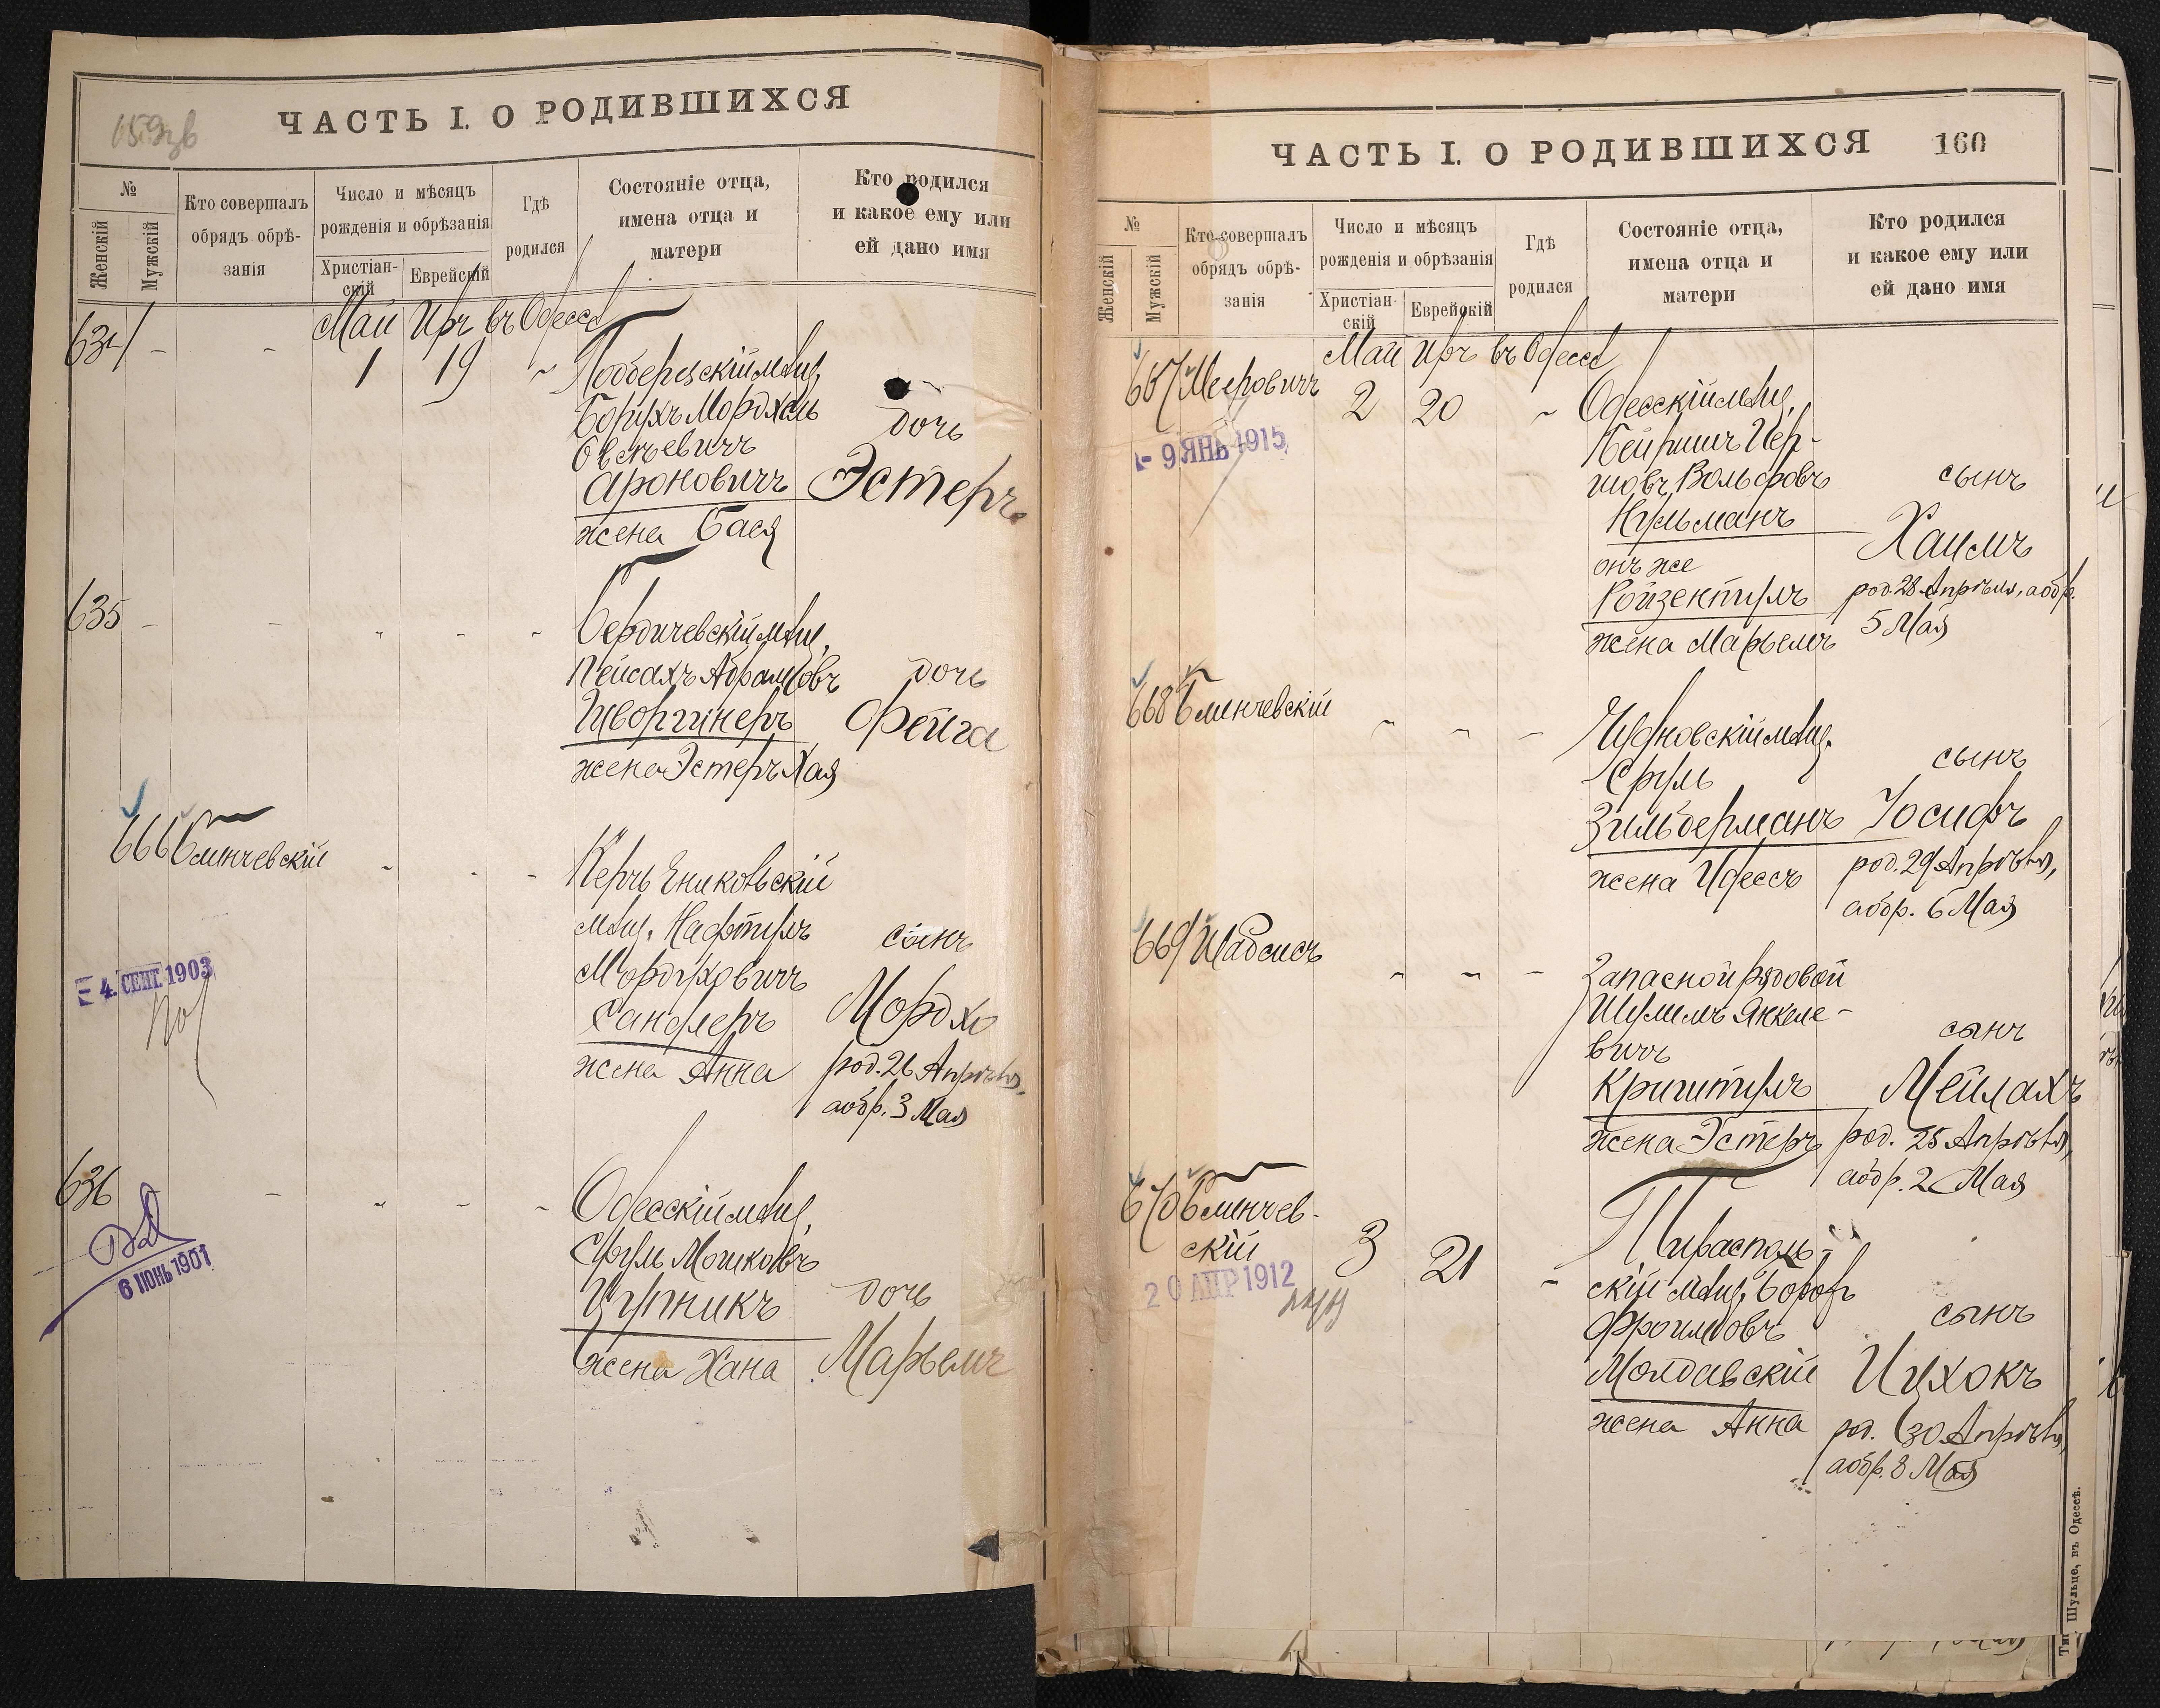 159 об
ЧАСТЬ I. О РОДИВШИХСЯ
№
Женскій
Мужскій
Кто совершалъ
обрядъ обрѣ-
занія
Число и мѣсяцъ
рожденія и обрѣзанія
Христіан-
скій
Еврейскій
Гдѣ
родился
Состояніе отца,
имена отца и
матери
Кто родился
и какое ему или
ей дано имя
634 - - Май Иръ въ Одессѣ
1 19 ~
мѣщ.
Борухъ Мордхель
Овсѣевичъ
Ароновичъ
жена Бася
дочь
Эстеръ
635 - - - - -
Бердичевскій мѣщ.
Пейсахъ Абрамовъ
жена Эстеръ Хая
дочь
Фейга
666 - - -
4. СЕНТ. 1903
Керчь Ениковскій
мѣщ. Нафтулъ
Мордуховичъ
Сандлеръ
жена Анна
сынъ
Мордхо
род. 26 Апрѣля,
а обр. 3 Мая
636 - - - -
6 ІЮНЬ 1901
Одесскій мѣщ.
Сруль Мошковъ
жена Хана
дочь
Марьемъ
ЧАСТЬ I. О РОДИВШИХСЯ 160
№
Женскій
Мужскій
Кто совершалъ
обрядъ обрѣ-
занія
Число и мѣсяцъ
рожденія и обрѣзанія
Христіан-
скій
Еврейскій
Гдѣ
родился
Состояніе отца,
имена отца и
матери
Кто родился
и какое ему или
ей дано имя
667 Мееровичъ Май Иръ въ Одессѣ
2 20 ~
- 9 ЯНВ 1915
Одесскій мѣщ.
Бейришъ Гер-
шовъ Вольфовъ
Нульманъ
онъ же
Ройзентулъ
жена Марьемъ
сынъ
Хаимъ
род. 28 Апрѣля, а обр.
5 Мая
668 - - -
Чудновскій мѣщ.
Сруль
Зильберманъ
жена Идессъ
сынъ
Іосифъ
род. 29 Апрѣля,
а обр. 6 Мая
669 Шабсисъ - - -
Запасной рядовой
Шулимъ Янкеле-
вичъ
Криштулъ
жена Эстеръ
сынъ
Мейлахъ
род. 25 Апрѣля,
а обр. 2 Мая
670
скій
3 21 -
20 АПР 1912
Тирасполь-
скій мѣщ.
Фроимовъ
Молдавскій
жена Анна
сынъ
Ицхокъ
род. 30 Апрѣля,
а обр. 8 Мая
Тип. Шульце, въ Одессѣ.